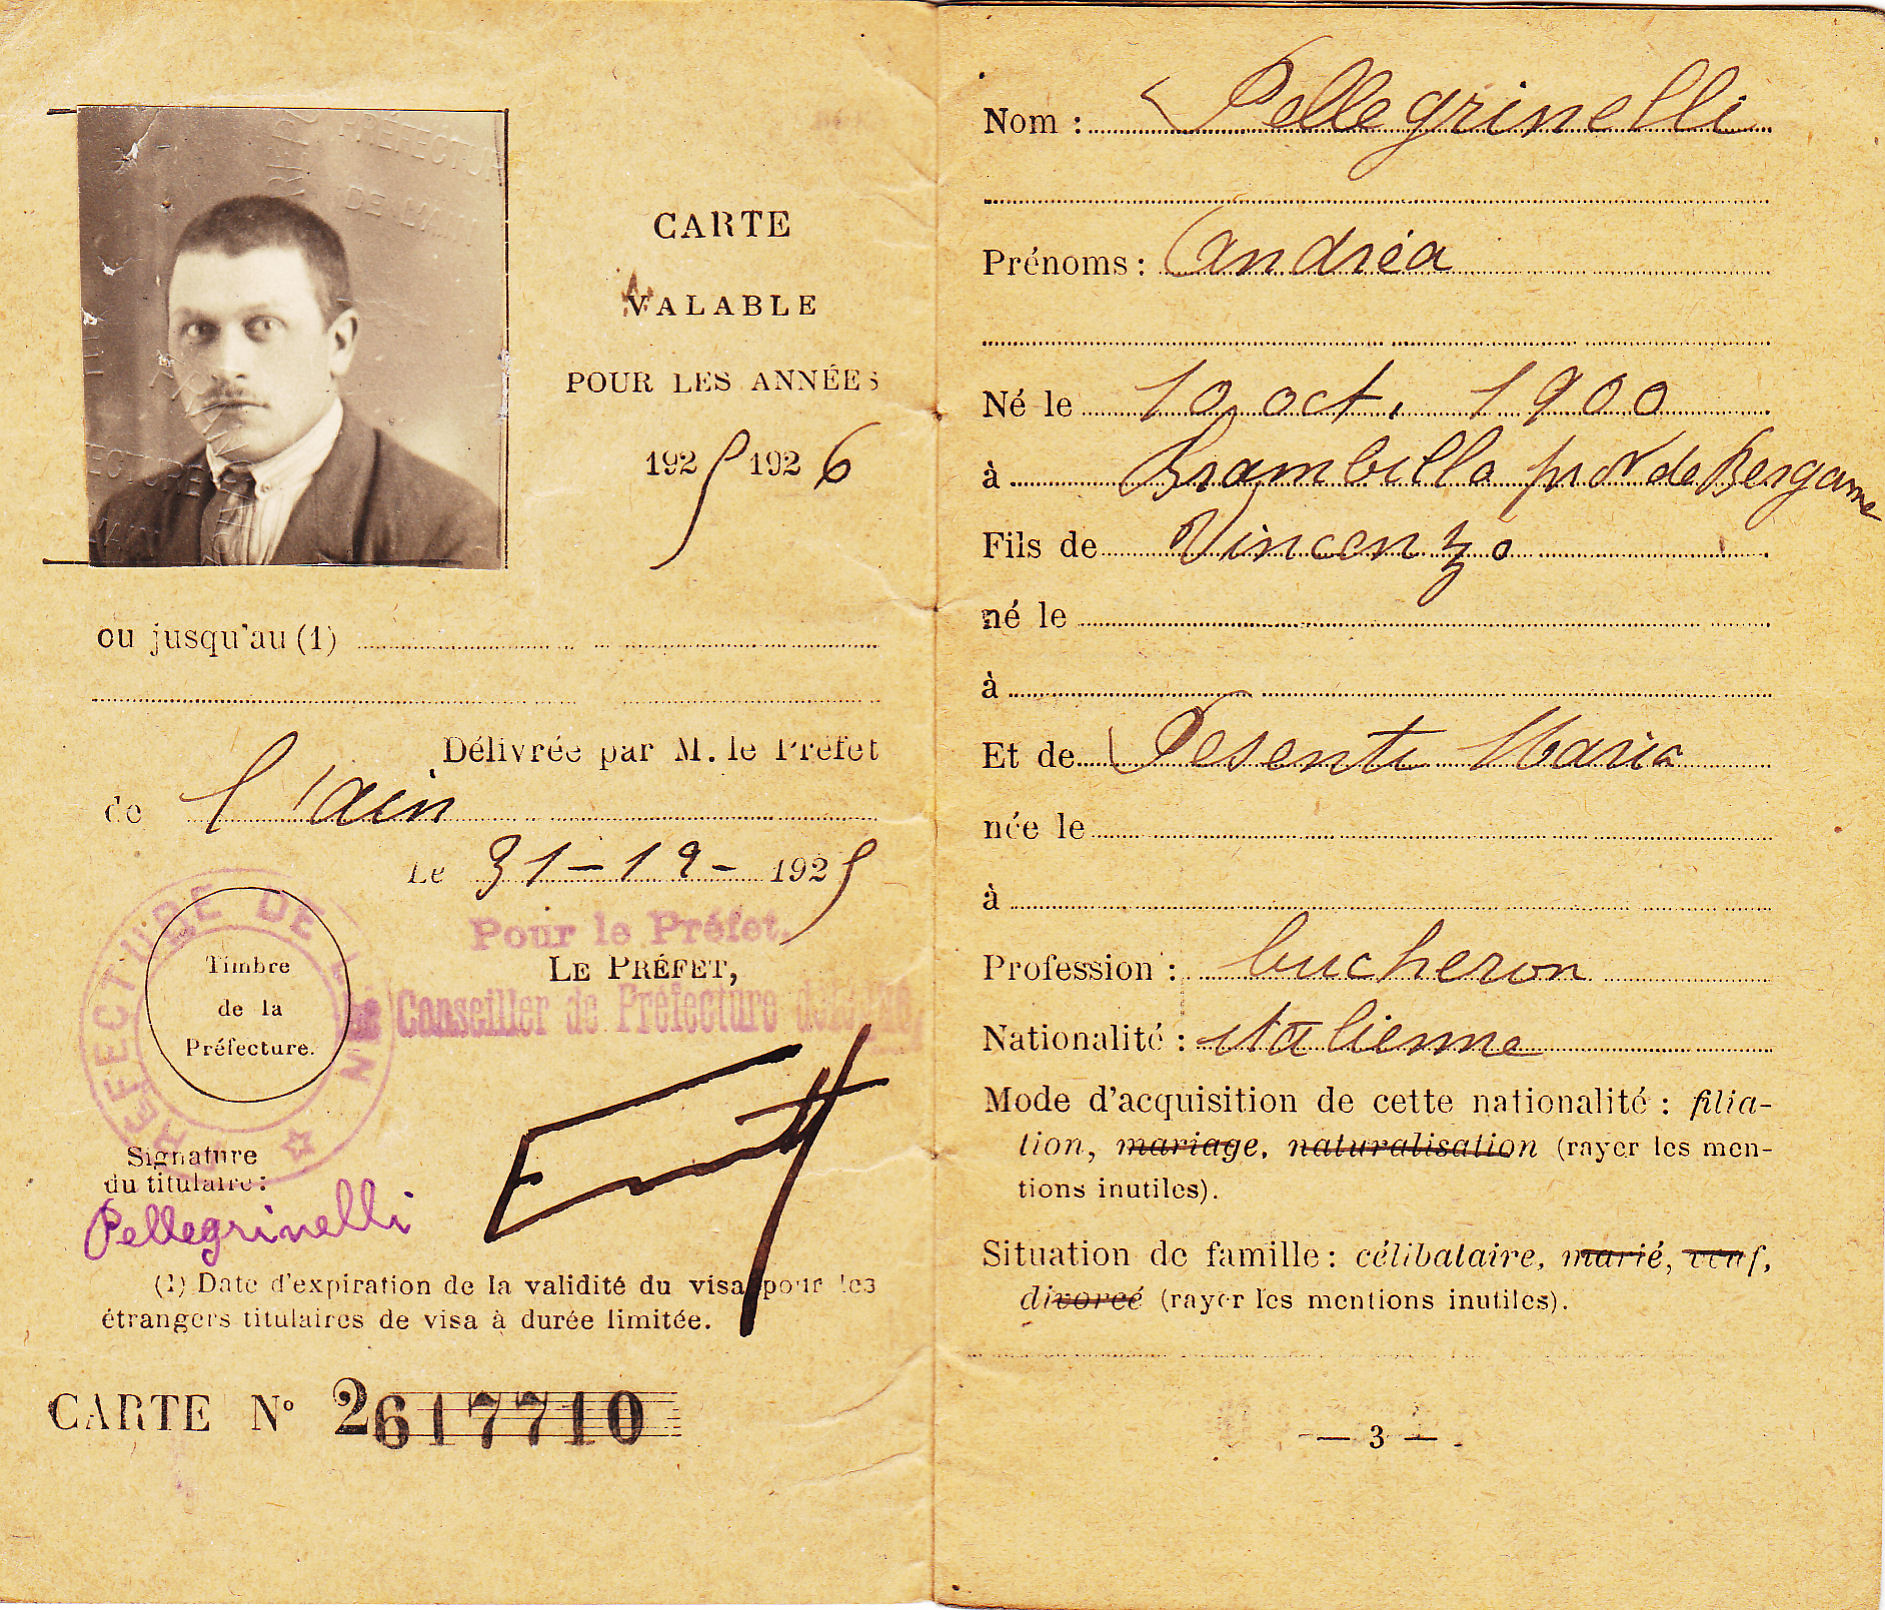 CARTE
VALABLE
POUR LES ANNÉES
1925 1926
ou jusqu'au (1)
Délivrée par M. le Préfet
de l'ain
Le 31-12-1925
Pour le Préfet.
LE PRÉFET,
Conseiller de Préfecture délégué,
PRÉFECTURE DE L'AIN
Timbre
de la
Préfecture.
Signature
du titulaire:
Pellegrinelli
(1) Date d'expiration de la validité du visa pour les
étrangers titulaires de visa à durée limitée.
CARTE N° 2617710
Nom : Pellegrinelli
Prénoms : Andréa
Né le 10 oct. 1900
à Brambilla prov de Bergame
Fils de Vincenzo
né le
à
Et de Pesenti Maria
née le
à
Profession : bucheron
Nationalité : italienne
Mode d'acquisition de cette nationalité : filia-
tion, mariage, naturalisation (rayer les men-
tions inutiles).
Situation de famille : célibataire, marié, veuf,
divorcé (rayer les mentions inutiles).
— 3 —